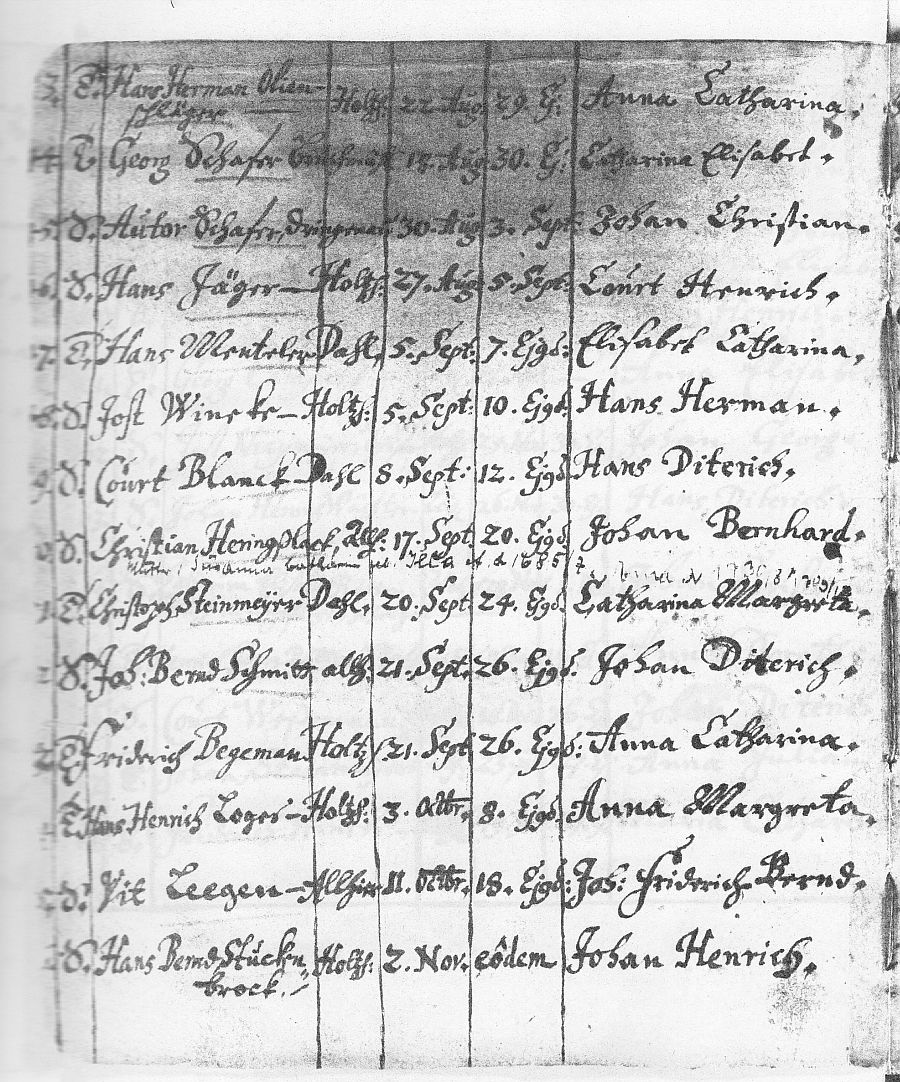 3. T. Hans Herman Olien- Holtzh: 22. Aug. 29. Ej: Anna Catharina.
schläger
4. T. Georg Schafer 12. Aug. 30. Ej: Catharina Elisabet.
5. S. Autor Schafer, Dringenau 30. Aug. 3. Sept. Johan Christian.
6. S. Hans Jäger – Holtzh: 27. Aug. 5. Sept: Court Henrich.
7. T. Hans Menteler Dahl. 5. Sept: 7. Ejgd: Elisabet Catharina.
8. S. Jost Wineke – Holtzh: 5. Sept: 10. Ejgd. Hans Herman.
9. S. Court Blanck Dahl 8. Sept: 12. Ejgd Hans Diterich.
S. Christian Heringslack, Allh: 17. Sept. 20. Ejgd. Johan Bernhard.
Susanna 1685
T. Christoph Steinmeÿer Dahl. 20. Sept. 24. Ejgd. Catharina Margreta.
S. Joh: Bernd Schmitt allh: 21. Sept. 26. Ejgd. Johan Diterich.
T. Friderich Begeman Holtzh. 21. Sept 26. Ejgd: Anna Catharina.
T. Hans Henrich Loges – Holtzh: 3. Octbr. 8. Ejgd. Anna Margreta.
S. Vit Leegen – Allhier 11. Octbr. 18. Ejgd: Joh: Friderich Bernd.
S. Hans Bernd Stücken Holtzh: 2. Nov. eôdem Johan Henrich.
brock. –